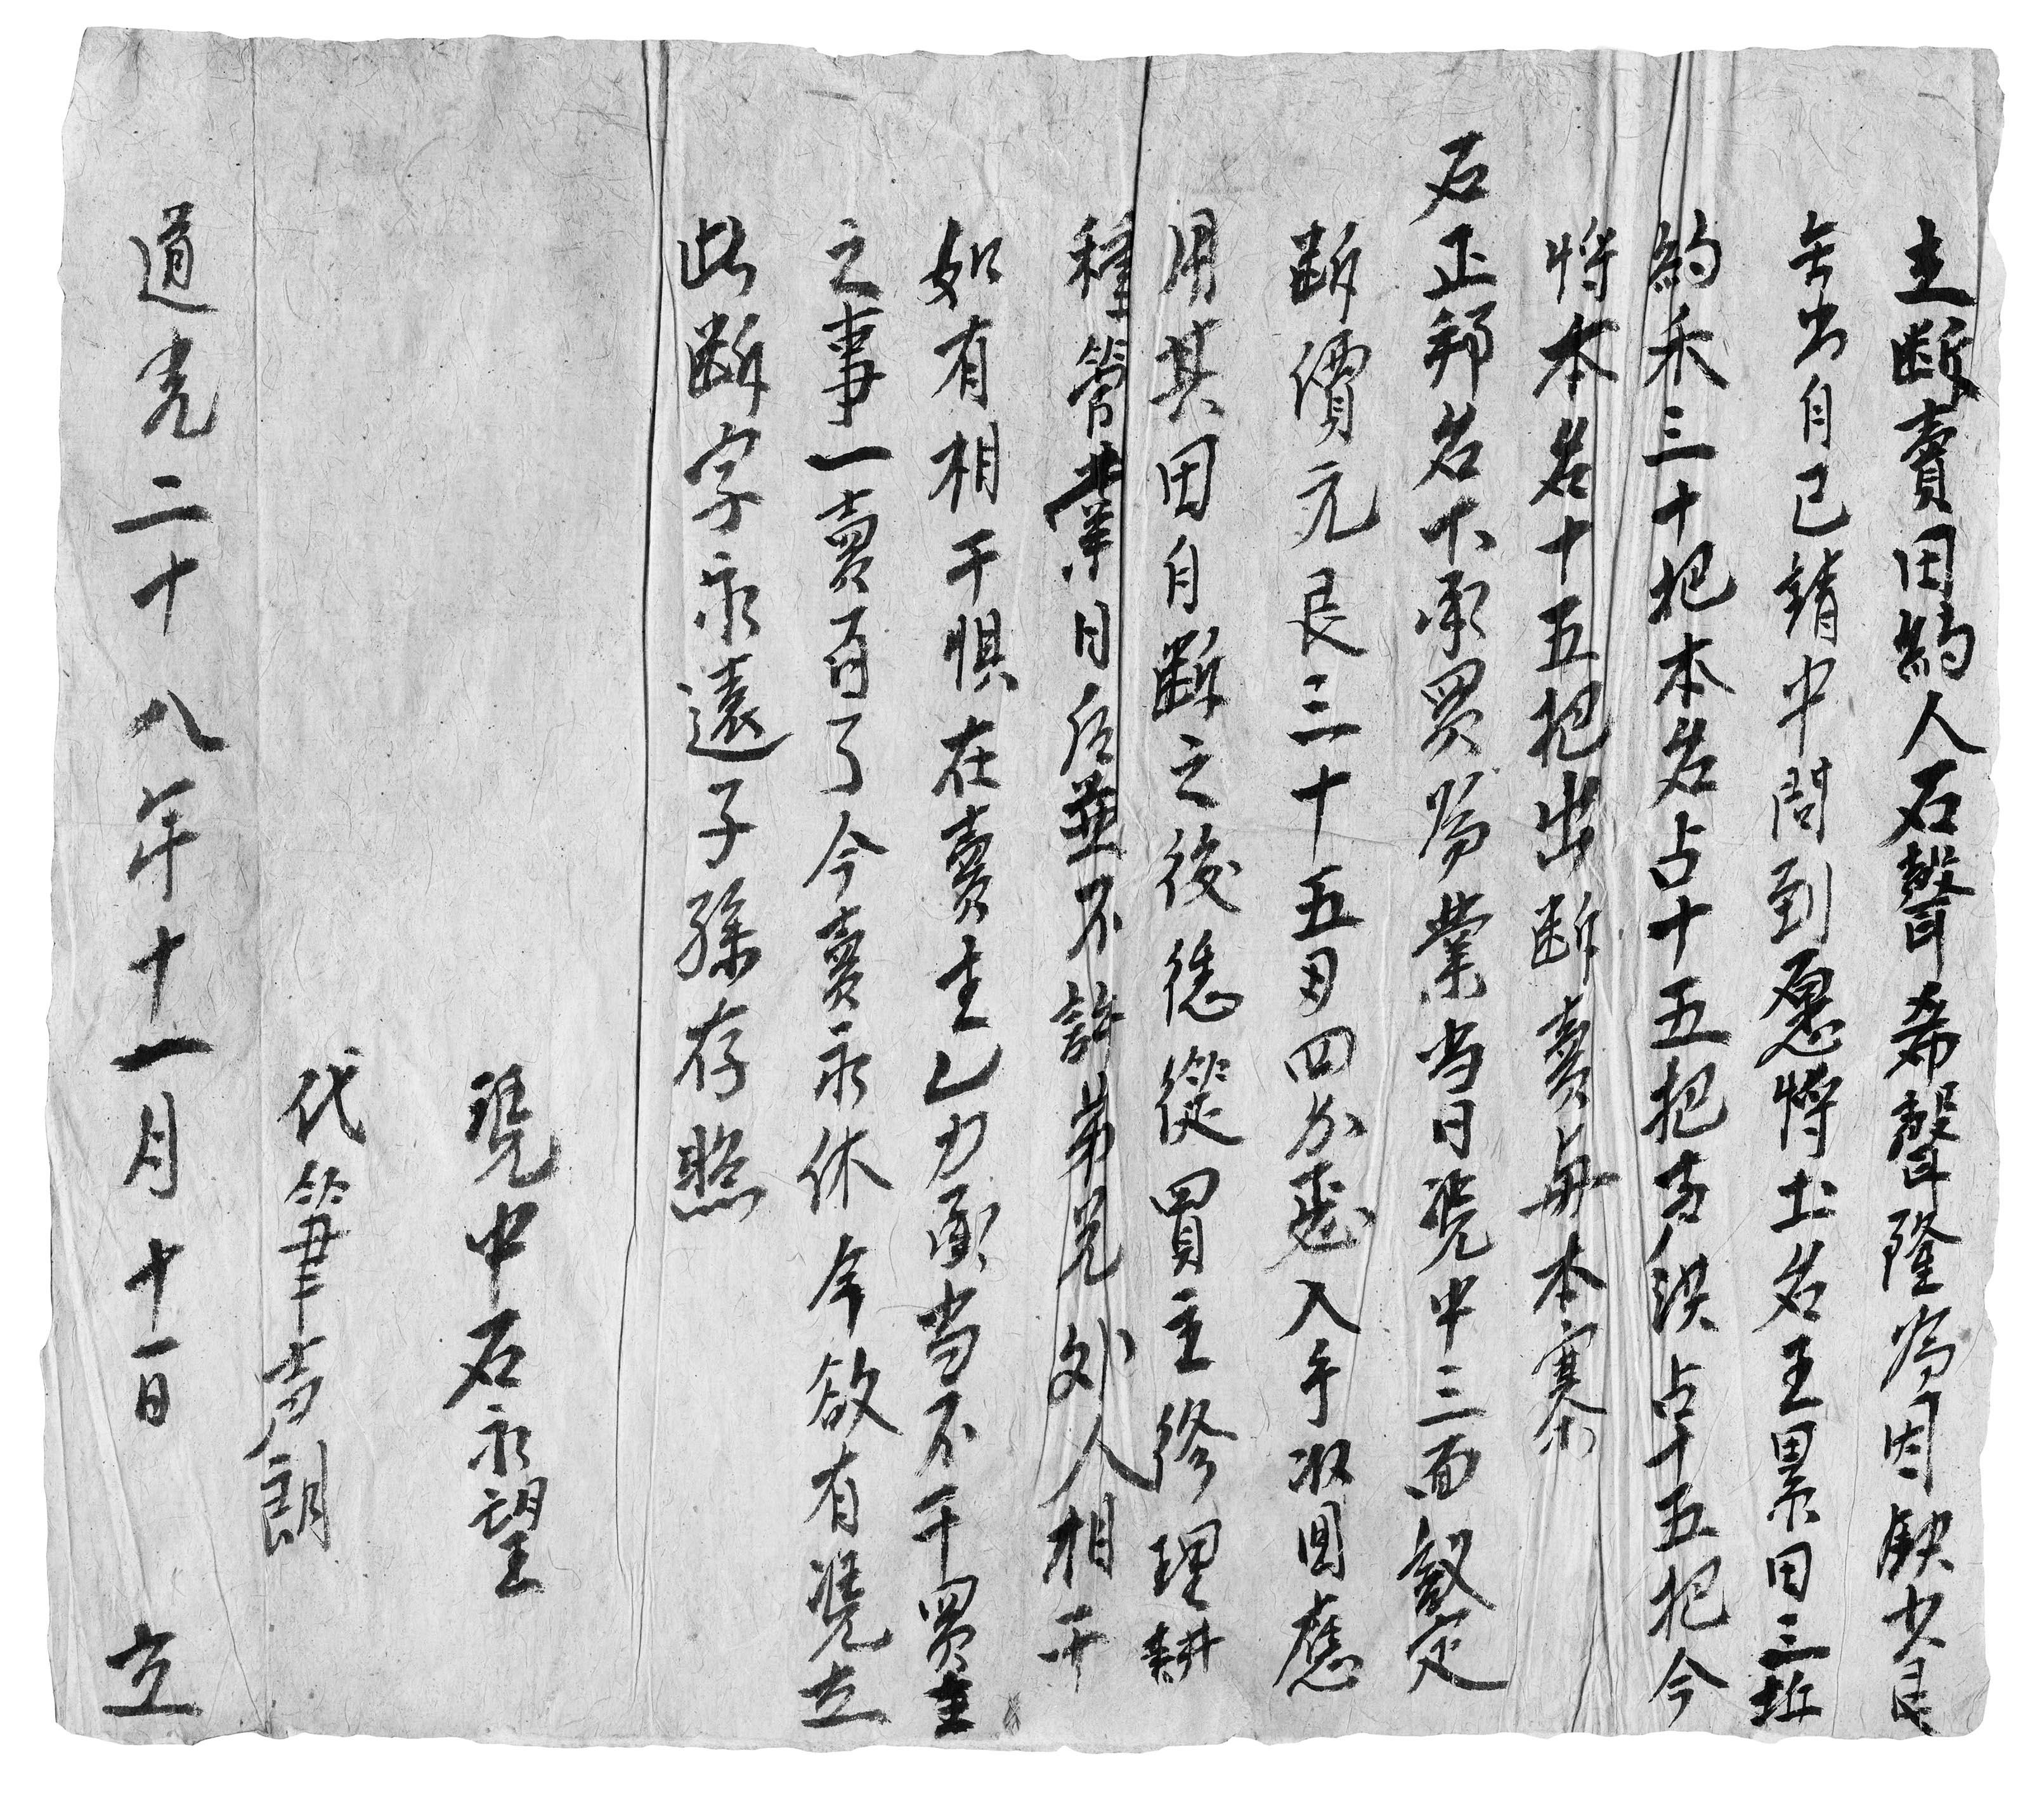 立断賣田約人石聲希聲隆為因缺少艮
無出自己請中問到愿將土名王累田三坵
約禾三十把本名占十五把声洪占十五把今
將本名十五把出断賣與本寨
石正邦名下承買為業当日凴中三面議定
断價元艮三十五刄四分整入手収回應
用其田自断之後凴從買主修理耕
種管業日后並不許弟兄外人相干
如有相干惧在賣主乚力承当不干買主
之事一賣百了今賣永休今欲有凴立
此断字永遠子孫存照
凴中石永望
代筆声朗
道光二十八年十一月十一日 立